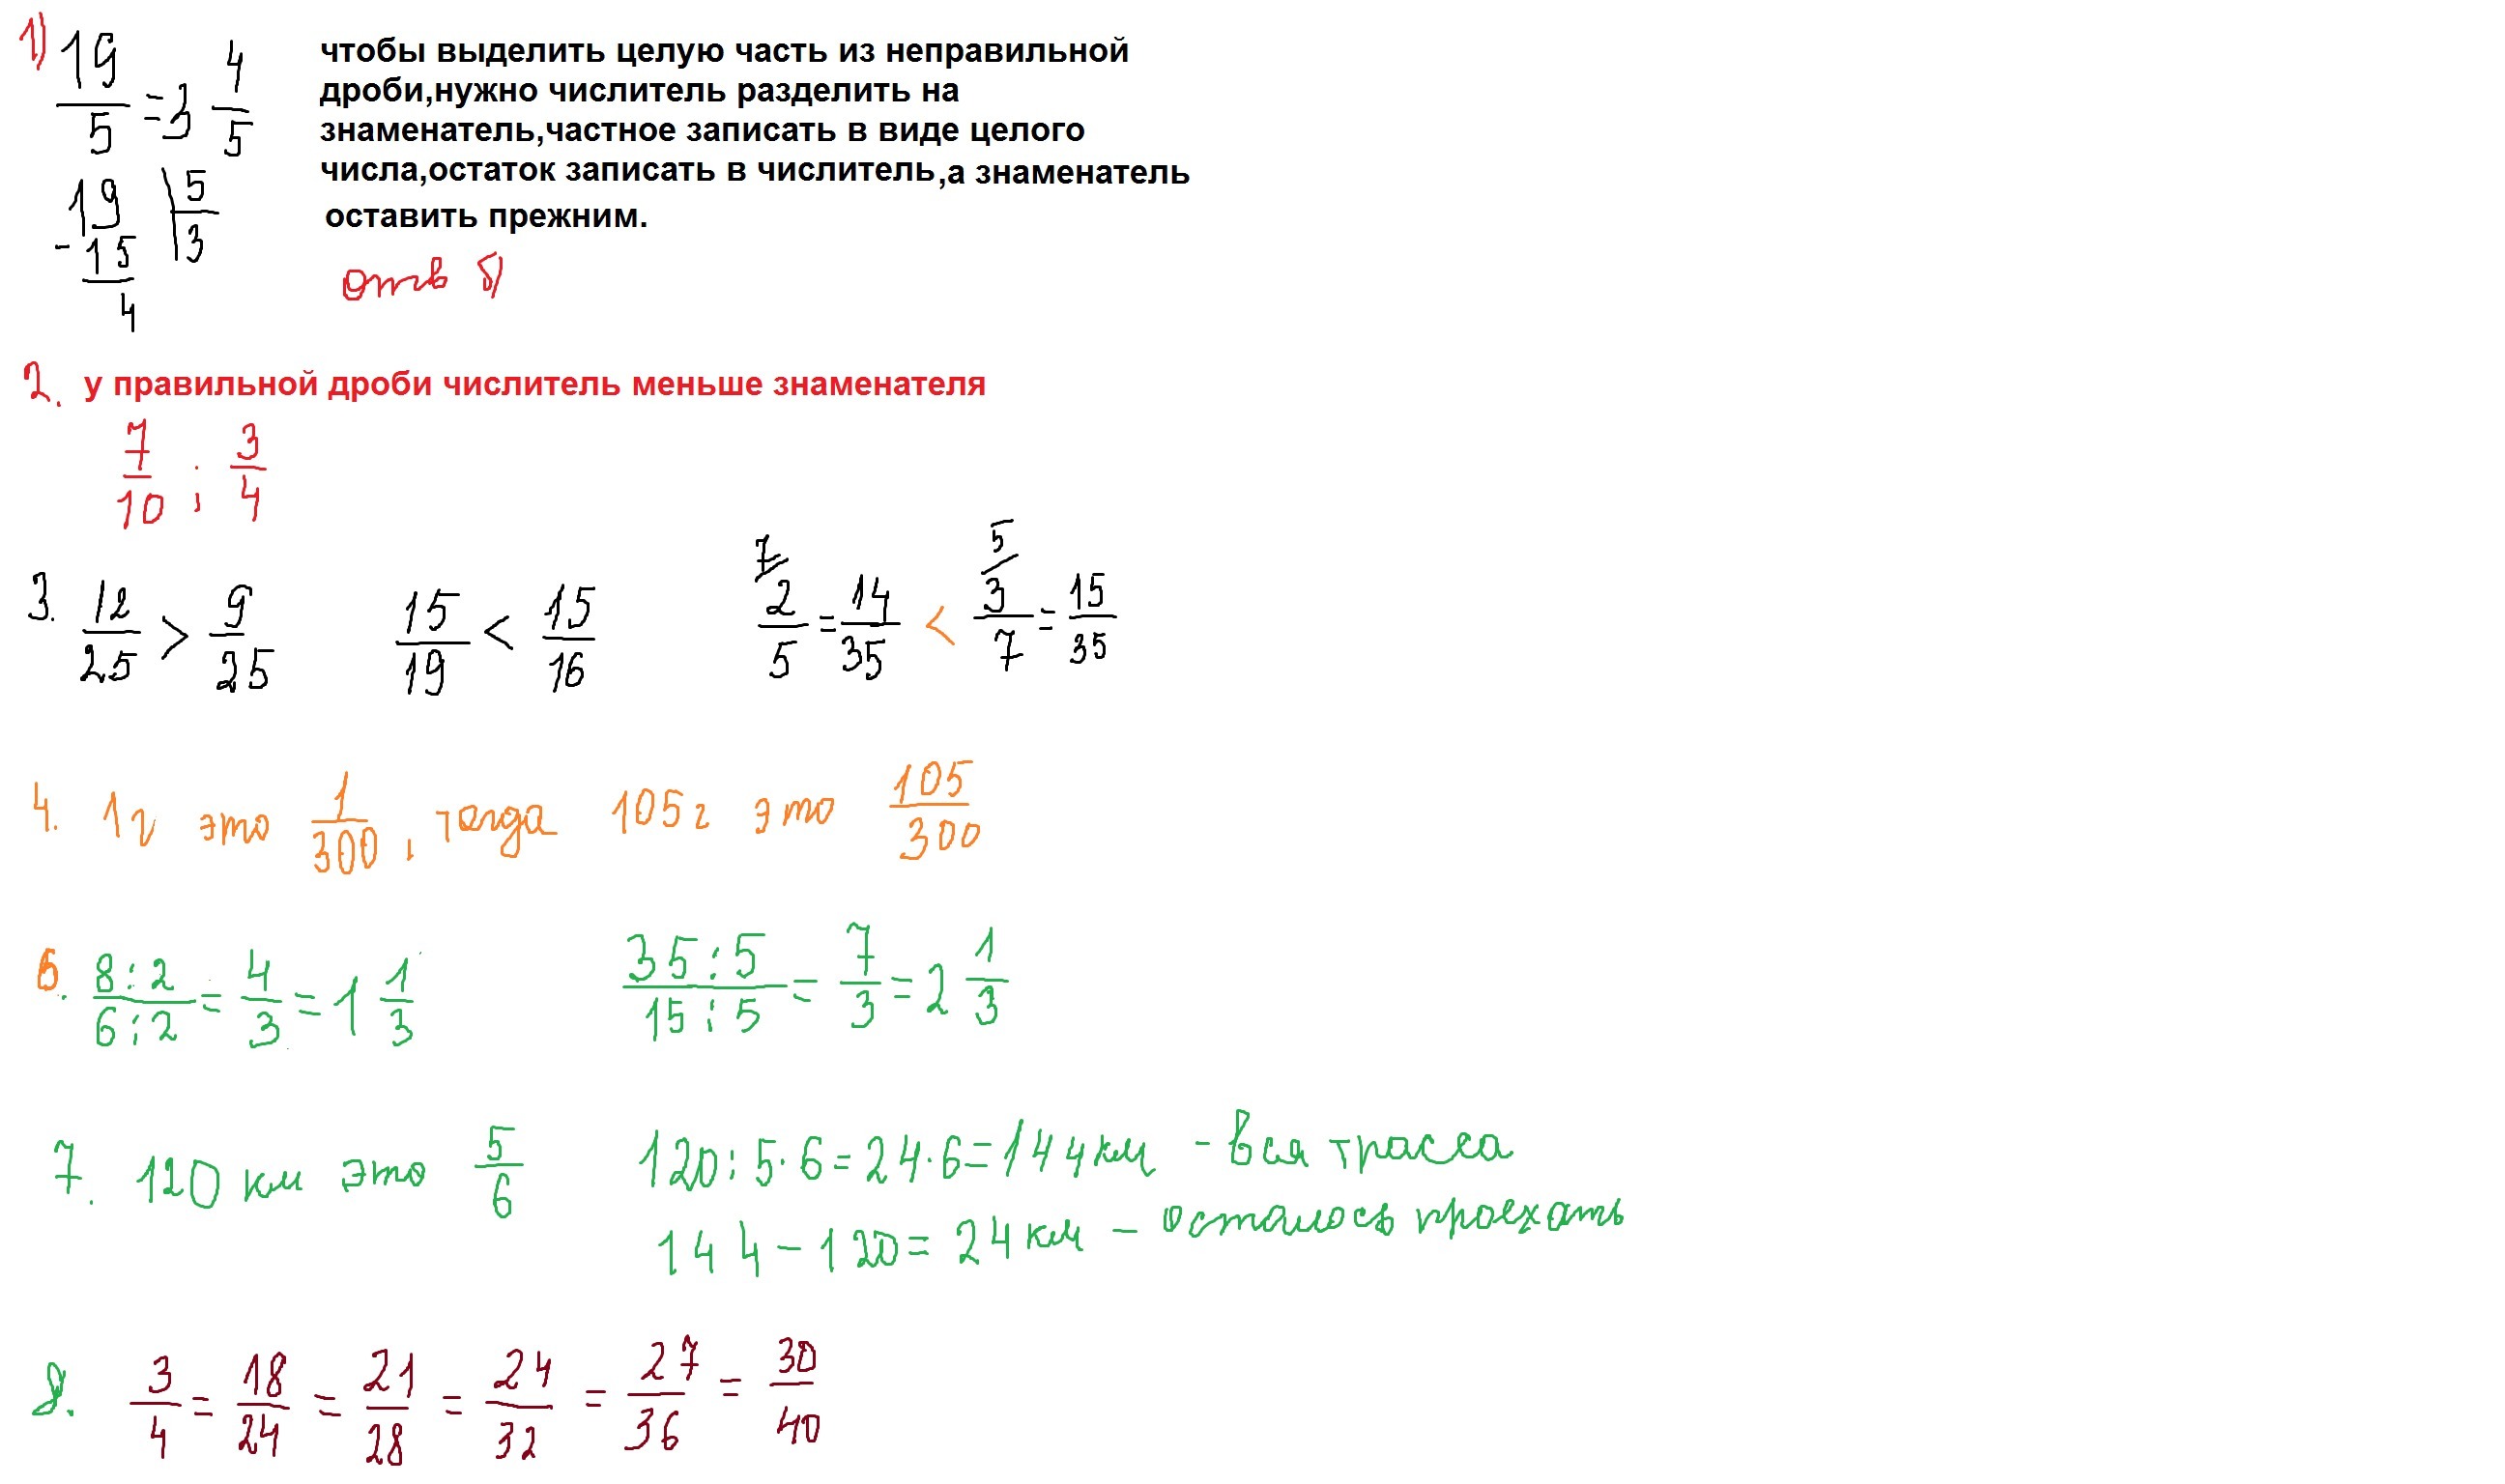 1) 19/5 = 3 4/5
чтобы выделить целую часть из неправильной
дроби,нужно числитель разделить на
знаменатель,частное записать в виде целого
числа,остаток записать в числитель,а знаменатель
оставить прежним.
19 | 5
- 15 | 3
4
отв б)
2. у правильной дроби числитель меньше знаменателя
7/10 ; 3/4
3. 12/25 > 9/25 15/19 < 15/16 7/ 2/5 = 14/35 < 5/ 3/7 = 15/35
4. 1г это 1/300, тогда 105г это 105/300
6. 8:2/6:2 = 4/3 = 1 1/3 35:5/15:5 = 7/3 = 2 1/3
7. 120 км это 5/6 120:5·6=24·6=144км - вся трасса
144-120=24км - осталось проехать
8. 3/4 = 18/24 = 21/28 = 24/32 = 27/36 = 30/40